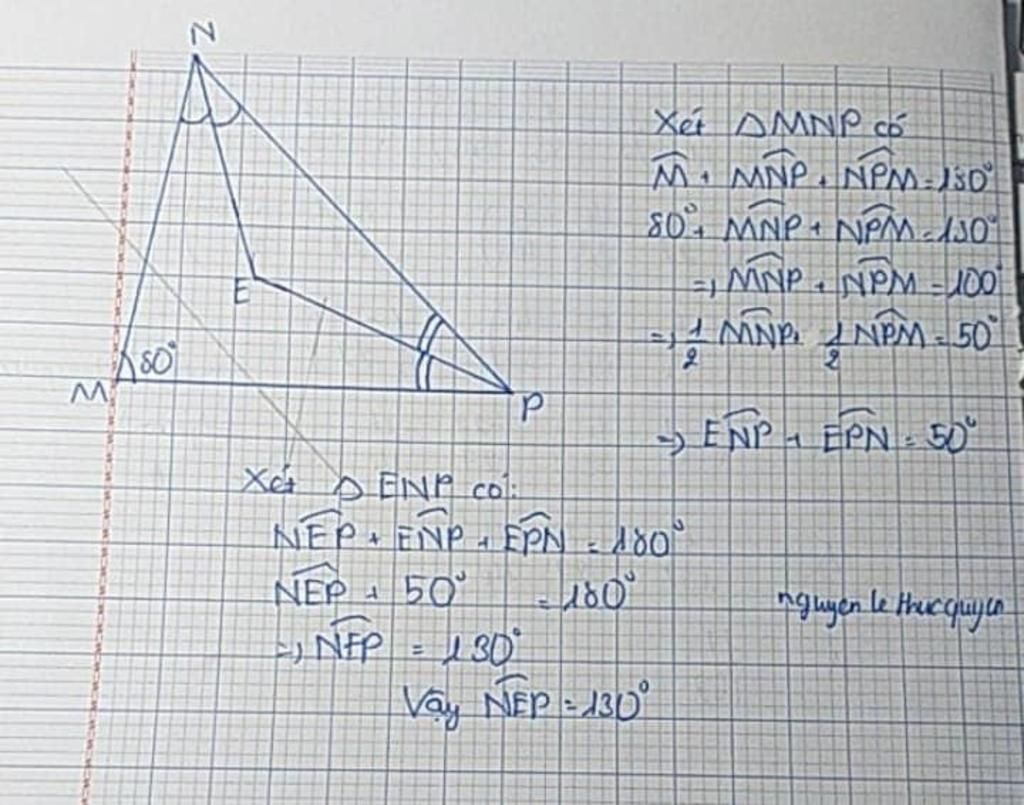 N
E
80°
M
P
Xét ΔMNP có
M̂ + MN̂P + NP̂M = 180°
80° + MN̂P + NP̂M = 180°
=> MN̂P + NP̂M = 100°
=> 1/2 MN̂P + 1/2 NP̂M = 50°
=> EN̂P + EP̂N = 50°
Xét Δ ENP có:
NÊP + EN̂P + EP̂N = 180°
NÊP + 50° = 180°
=> NÊP = 130°
Vậy NÊP = 130°
nguyen le thucquyen